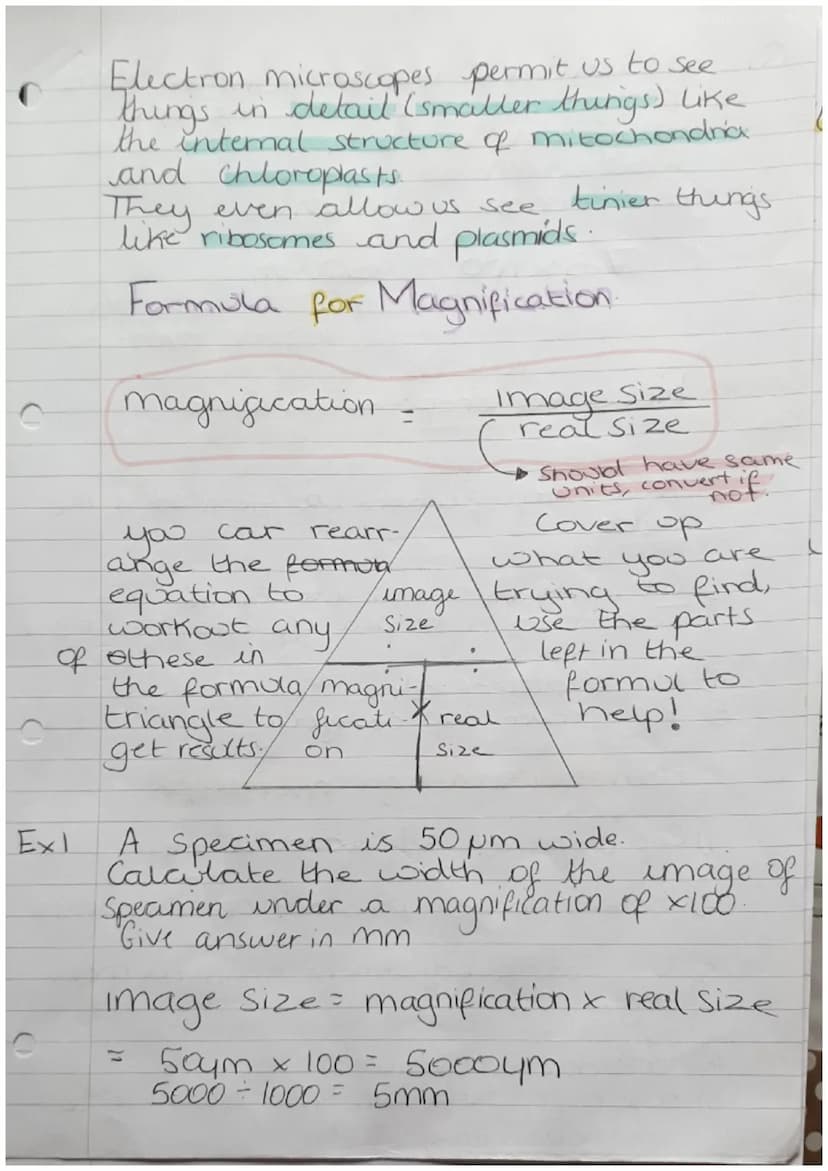 Electron microscopes permit us to see
things in detail (smaller things) like
the internal structure of mitochondria
and chloroplasts.
They even allow us see tinier things
like ribosomes and plasmids.
Formula for Magnification.
magnification = image size
real size
should have same
units, convert if
not.
you can rearr-
ange the formula
equation to
workout any
of these in
the formula
triangle to
get results.
image
size
÷ ÷
magni-
ficati-
on
X
real
size
Cover up
what you are
trying to find,
use the parts
left in the
formul to
help!
Ex1 A specimen is 50 µm wide.
Calculate the width of the image of
specimen under a magnification of x100.
Give answer in mm
image size = magnification x real size
= 50µm x 100 = 5000µm
5000 ÷ 1000 = 5mm